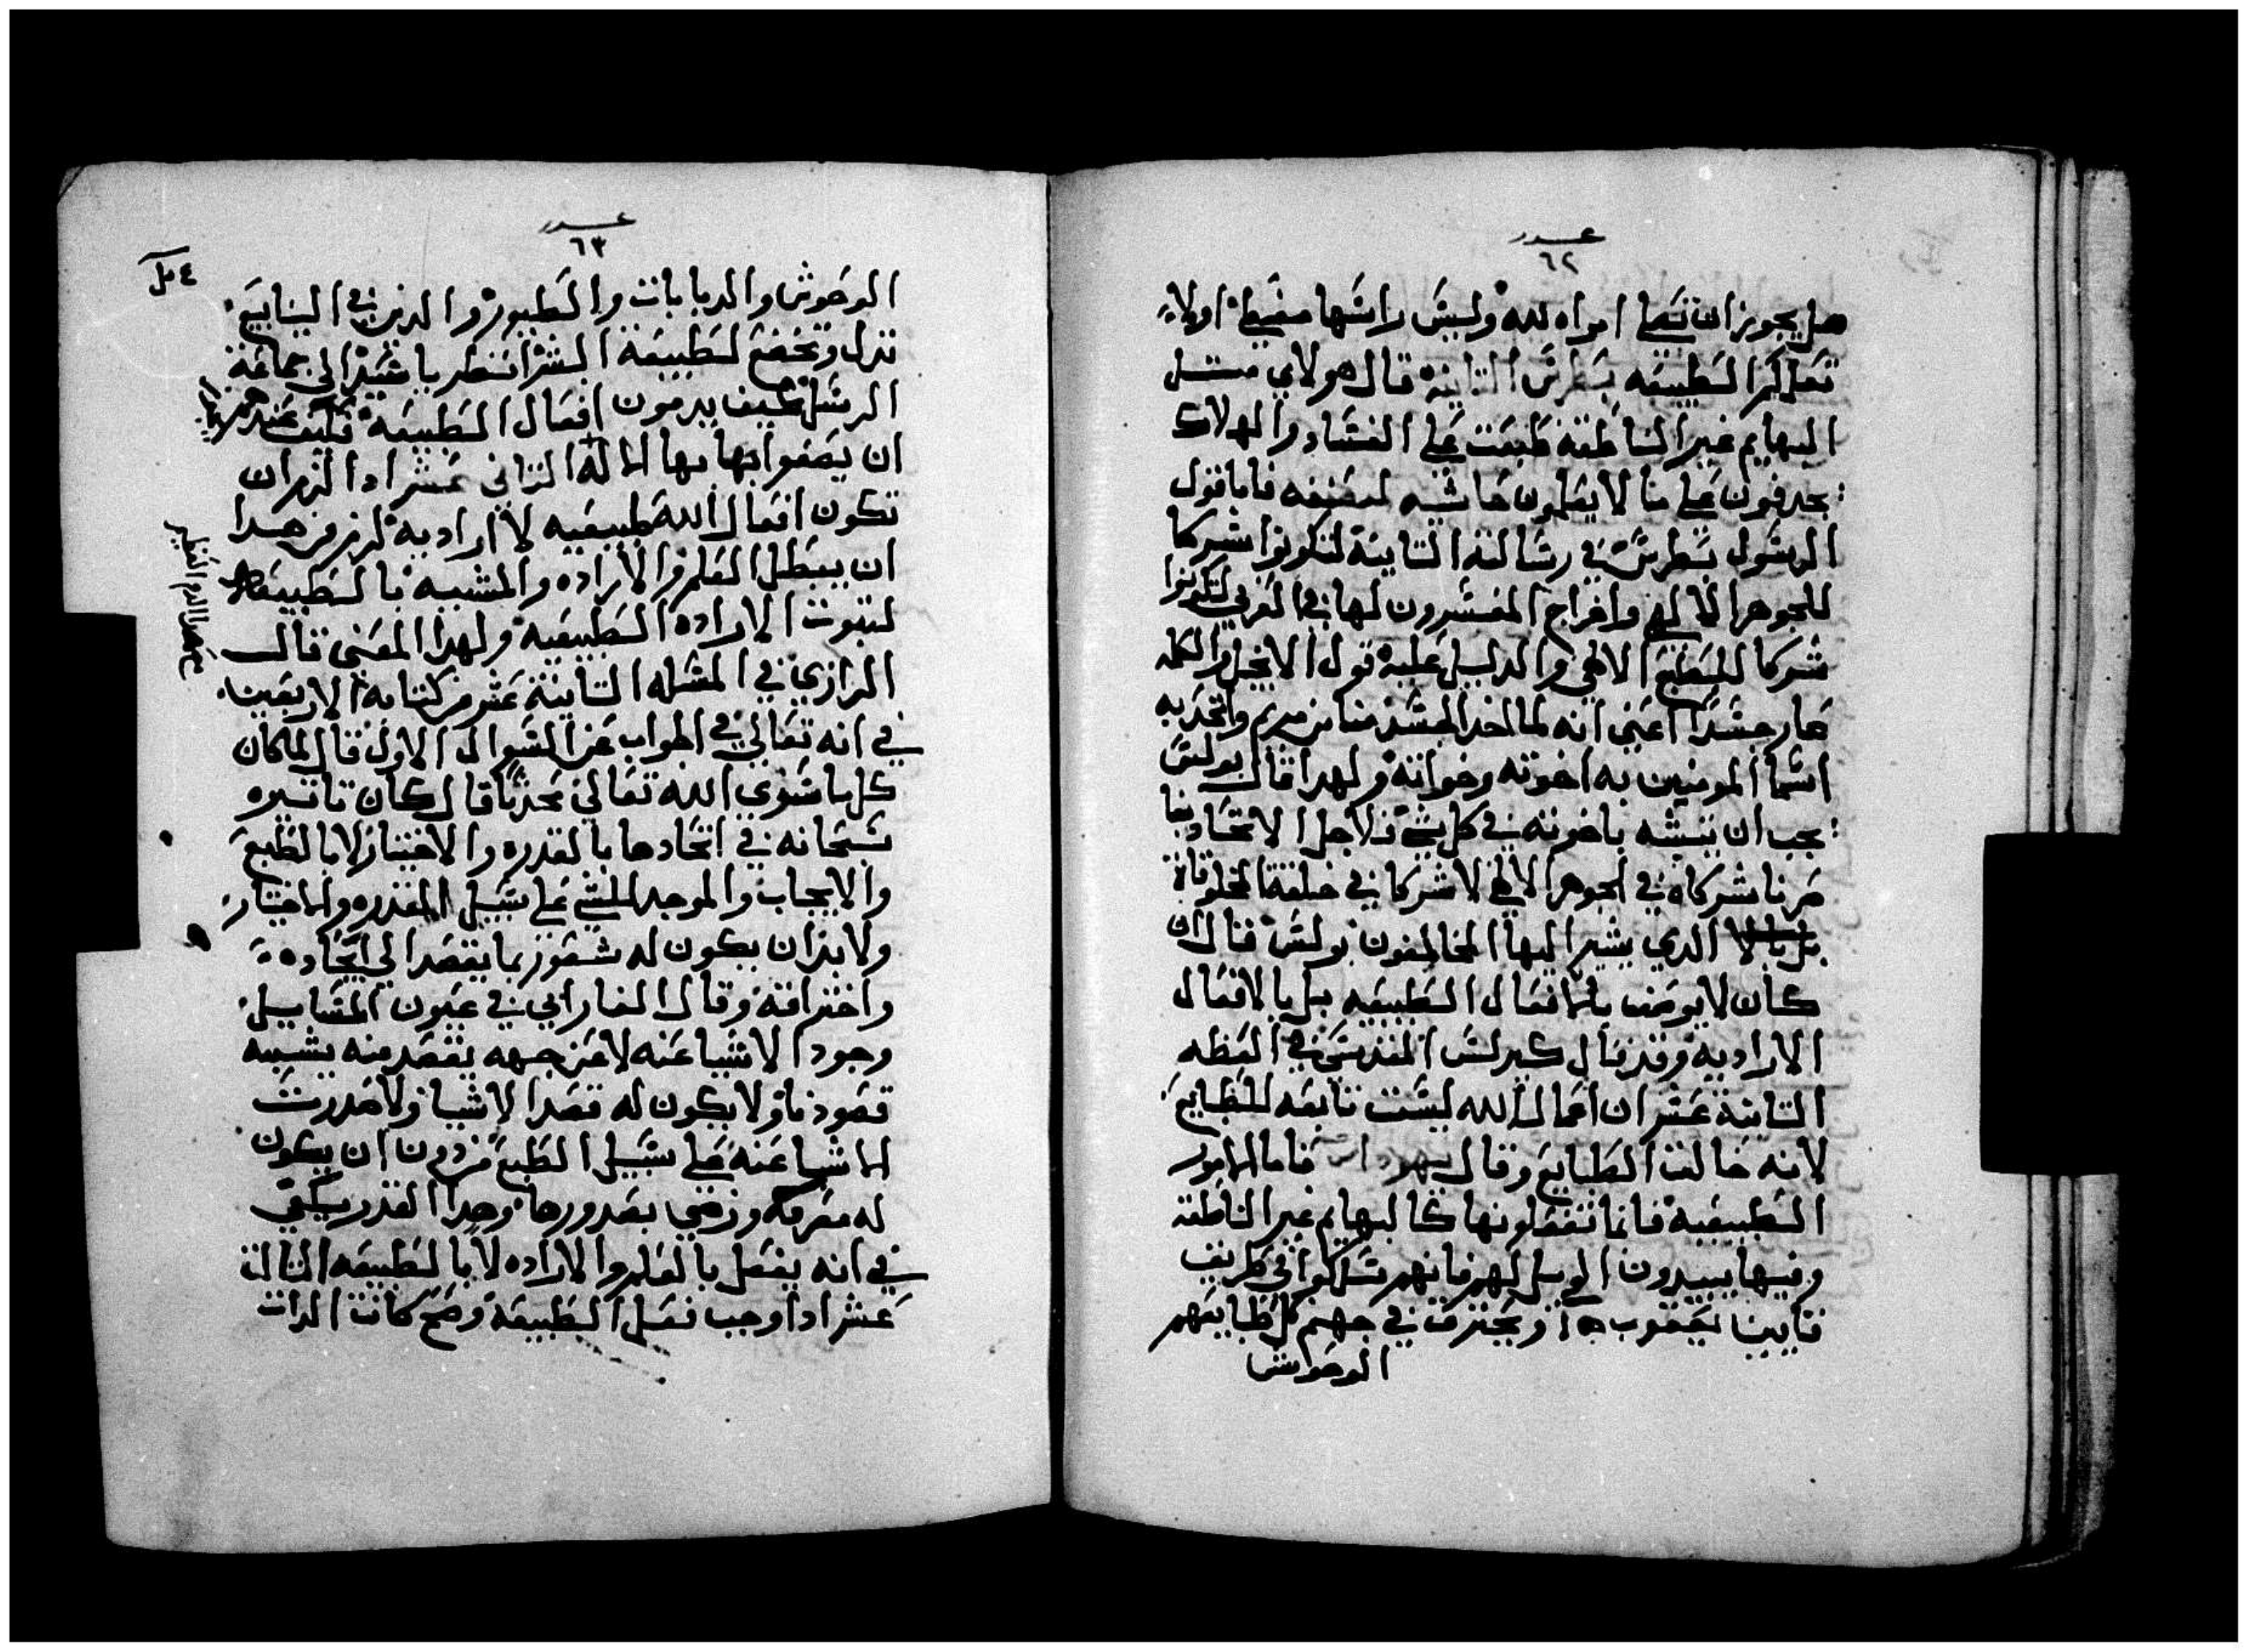 عدد
٦٢
هل يجوز ان تصلي امراه لله وليس راسها مغطي اولاء
تعلمكم الطبيعه بطرس الثانيه قال هولاي مثل
البهايم غير الناطقه طبعت علي الفساد والهلاك
يجدفون علي ما لا يعلمون فاما قول
الرسول بطرس في رسالته الثانية لتكونوا شركا
للجوهر الالهي المفسرون لها في العربي لتكونوا
شركا للطبع الالاهي والدليل عليه قول الانجيل والكلمه
صار جسدا اعني انه لما اخد الجسد منا من مريم واتحد به
اسما المومنين به اخوته وخواته ولهدا قال بولس
يجب ان يتشبه باخوته في كل شي فلاجل الاتحاد بنا
صرنا شركاه في الجوهر الالاهي لا شركا في خلقة المخلوقاة
الدي يشير اليها المخالفون بولس قال ان
كان لا يوصف بالافعال الطبيعيه بل بالافعال
الاراديه وقد قال كيرلس المقدسي في العظه
الثانية عشر ان افعال الله ليست تابعه للطبايع
لانه خالف الطبايع وقال يهوداس فاما الامور
الطبيعيه فانما تفعلونها كالبهايم غير الناطقه
وفيها يبيدون الويل لهم فانهم سلكوا في طريف
قايين يعقوب ويحترق في جهنم كل طبايعهم
الوحوش
عدد
٦٣
الوحوش والدبابات والطيور والدين في الينابيع
تدل وتخضع لطبيعة البشر انظر يا سيد الي جماعة
الرسل كيف يدمون افعال الطبيعه فكيف عندهم
ان يصفوا بها الاله التاني عشر ادا لزم ان
تكون افعال الله طبيعيه لا اراديه لزم من هدا
ان يبطل العلم والاراده والمشيه بالطبيعه
لتبوت الاراده الطبيعيه ولهدا المعني قال
الرازي في المسله التانية عشر من كتابه الاربعين
في انه تعالي في الجواب عن السوال الاول قال لما كان
كل ما سوي الله تعالي محدثا قال كان تاتيره
سبحانه في اتحادها بالقدره والاختيار لا بالطبع
والايجاب والموجد للشي علي سبيل القدره والاختيار
ولابد ان يكون له شعور بما يقصد الي ايجاده
واختراقه وقال الفارابي في عيون المسايل
وجود الاشيا عنه لا عن جهه بقصد منه يشبه
قصودنا ولا يكون له قصد الاشيا ولا صدرت
الاشيا عنه علي سبيل الطبع من دون ان يكون
له معرفه ورضي بصدورها وهدا القدر يكفي
في انه يفعل بالعلم والاراده لا بالطبيعه التالت
عشر ادا وجب فعل الطبيعه وضح كانت الدات